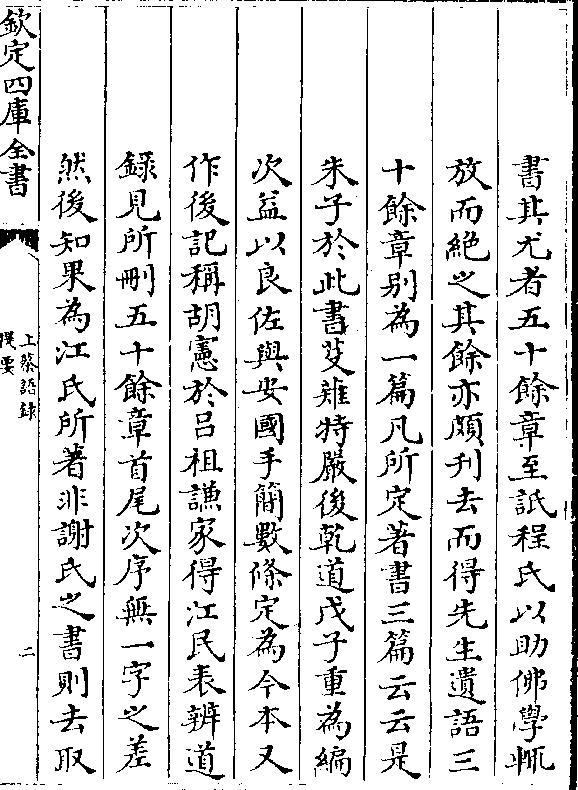 書其尤者五十餘章至詆程氏以助佛學輒
放而絶之其餘亦頗刋去而得先生遺語三
十餘章别為一篇凡所定著書三篇云云是
朱子於此書芟薙特嚴後乾道戊子重為編
次益以良佐與安國手簡數條定為今本又
作後記稱胡憲於吕祖謙家得江民表辨道
錄見所刪五十餘章首尾次序無一字之差
然後知果為江氏所著非謝氏之書則去取
欽定四庫全書
上蔡語録
提要
二